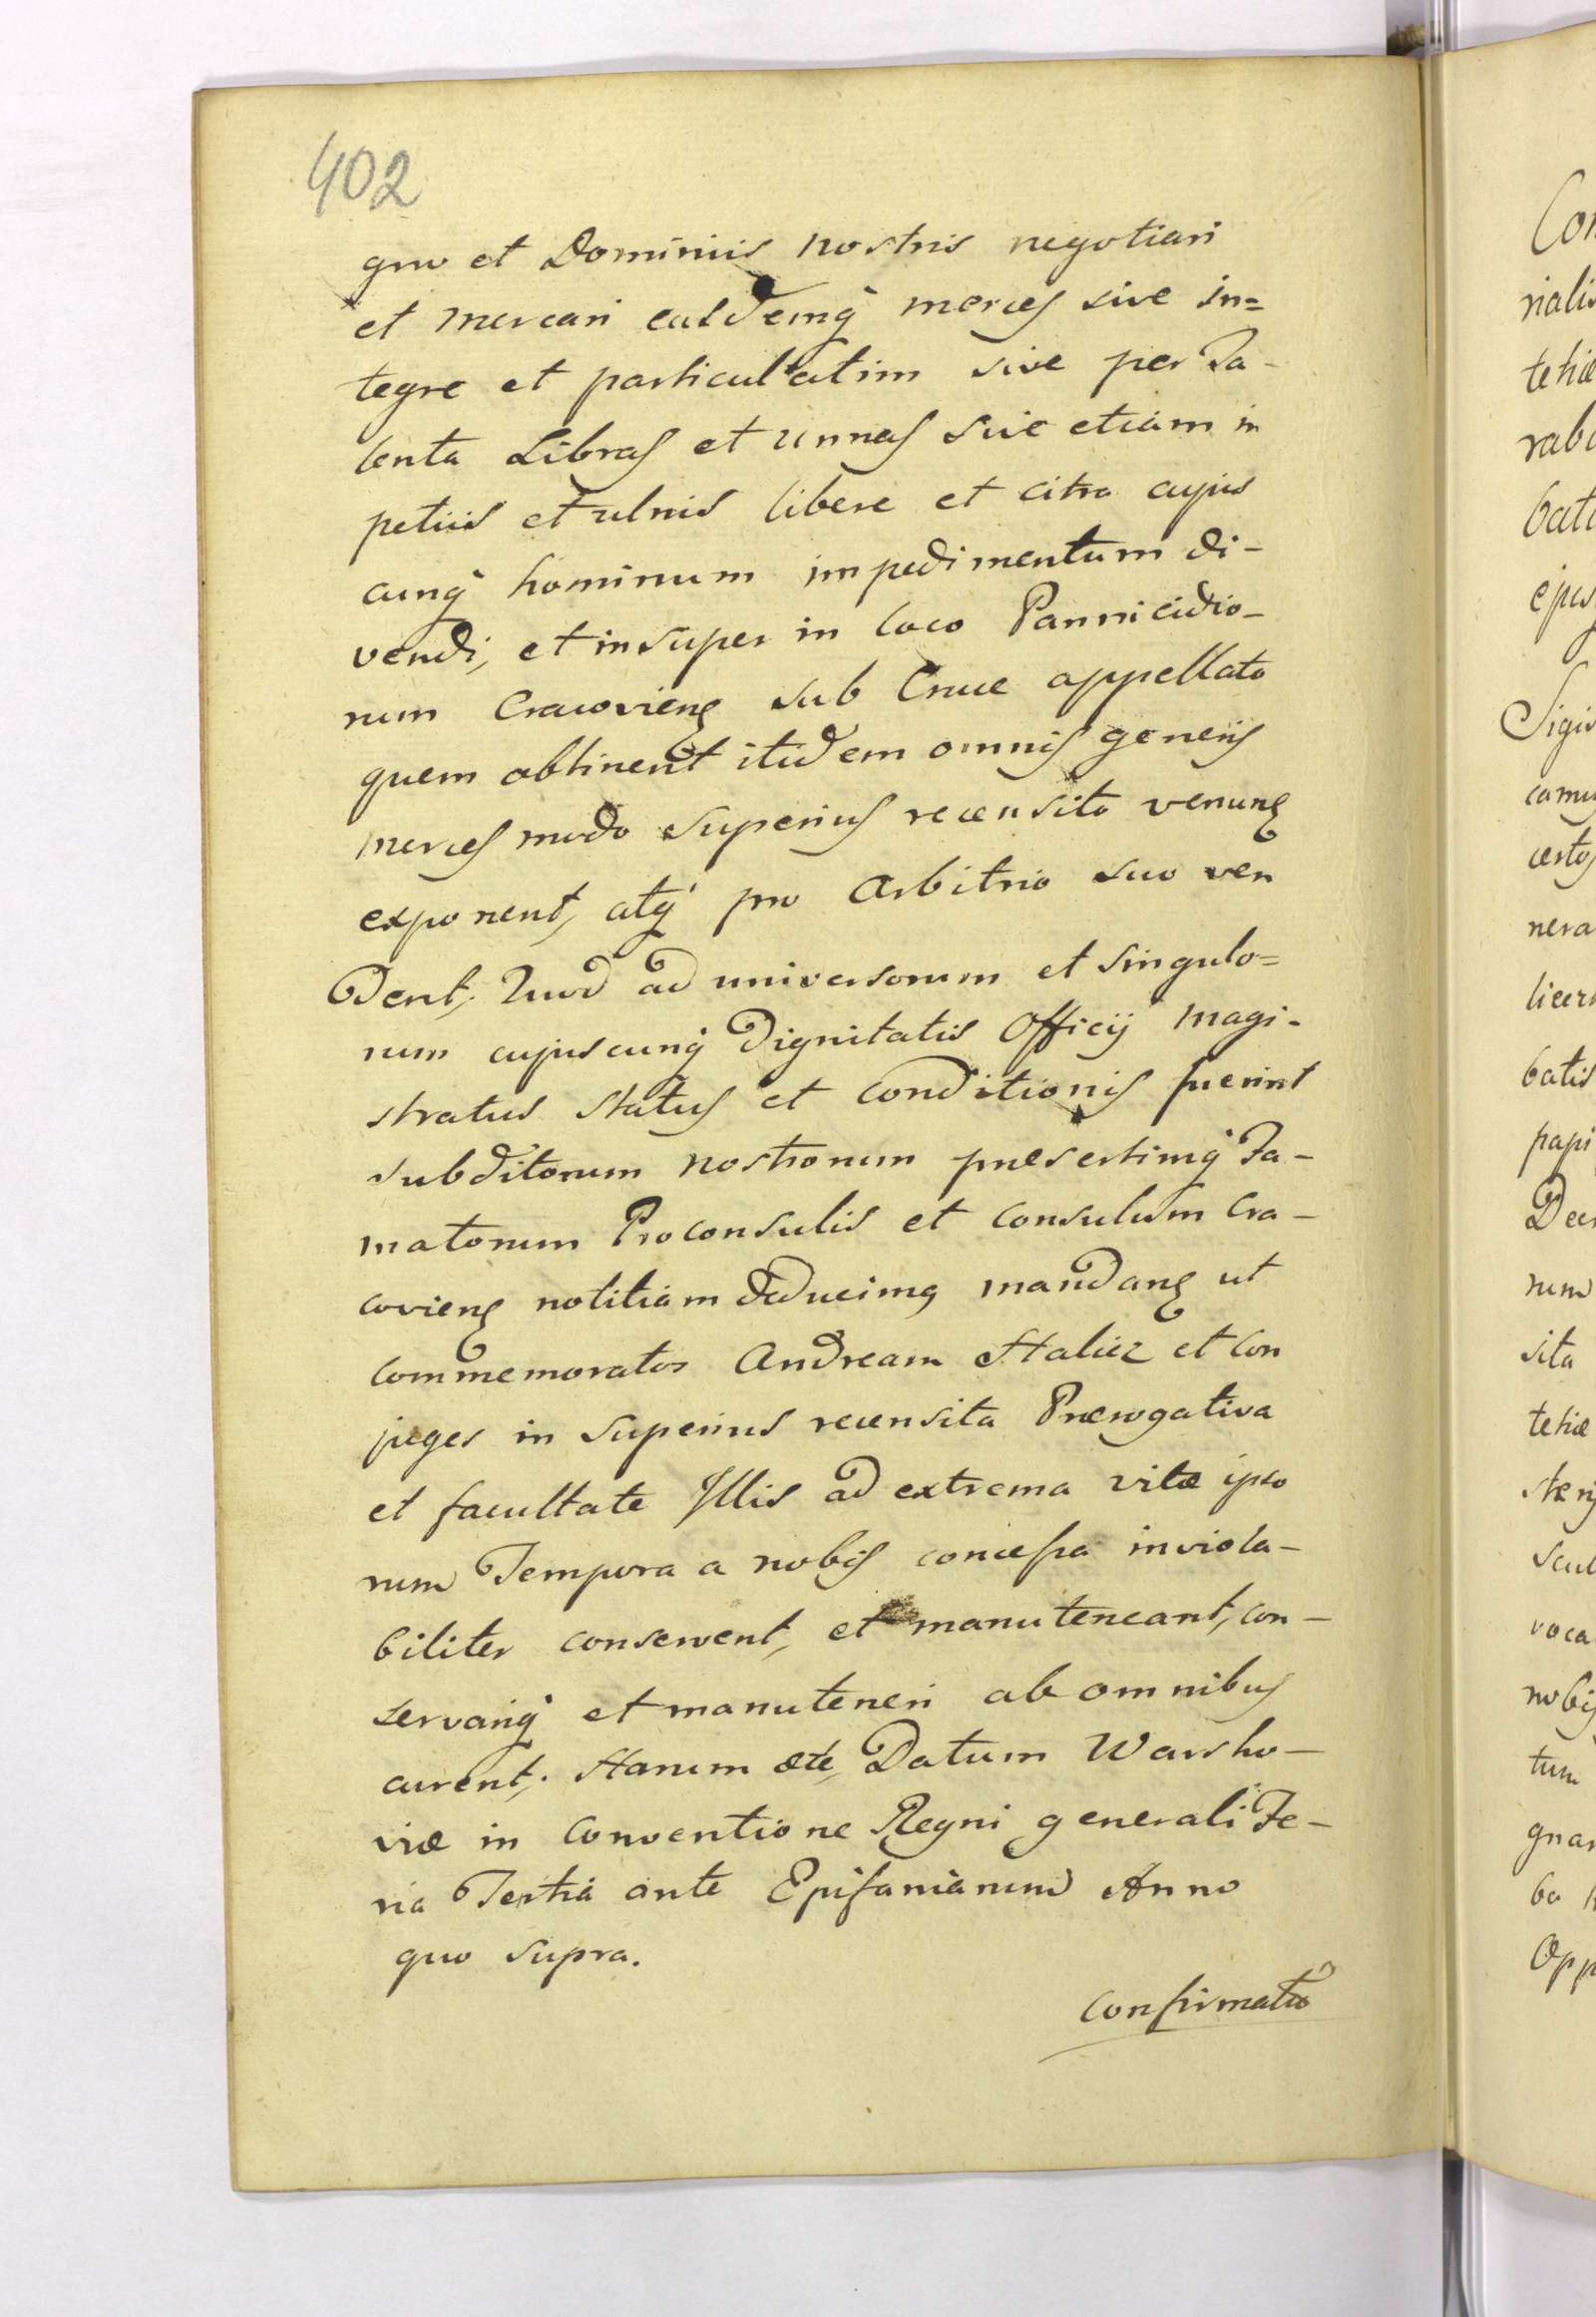 402
gno et Dominiis nostris negotiari
et mercari easdemq̀ merces sive in=
tegre et particulatim sive per Ta-
lenta Libras et unnas sive etiam in
petiis et ulnis libere et citra cujus
cunq̀ hominum impedimentum di-
vendi, et insuper in loco Pannicidio-
rum Cracoviens sub Cruce appellato
quem obtinent itidem omnis generis
merces modo superius recensito venung
exponent, atq̀ pro arbitrio suo ven
dent, Quod ad universorum et singulo=
rum cujuscunq̀ Dignitatis Officij Magi-
stratus status et conditionis fuerint
subditorum nostrorum præsertimq̀ Fa-
matorum Proconsulis et Consulum Cra-
coviens notitiam deducimq mandans ut
commemoratos Andream Italicz et Con
juges in superius recensita Prærogativa
et facultate Illis ad extrema vitæ ipso
rum Tempora a nobis concessa inviola-
biliter conservent, et manuteneant, con-
servariq̀ et manuteneri ab omnibus
curent, Harum etc, Datum Warsho-
viæ in Conventione Regni generali Fe-
ria Tertia ante Epifaniarum Anno
quo supra.
Confirmatio
Con
rialis
tetiæ
ejus
Sigis
camu
nera
batis
papi
rum
sita
tetiæ
voca
nobis
tum
gnar
Opp